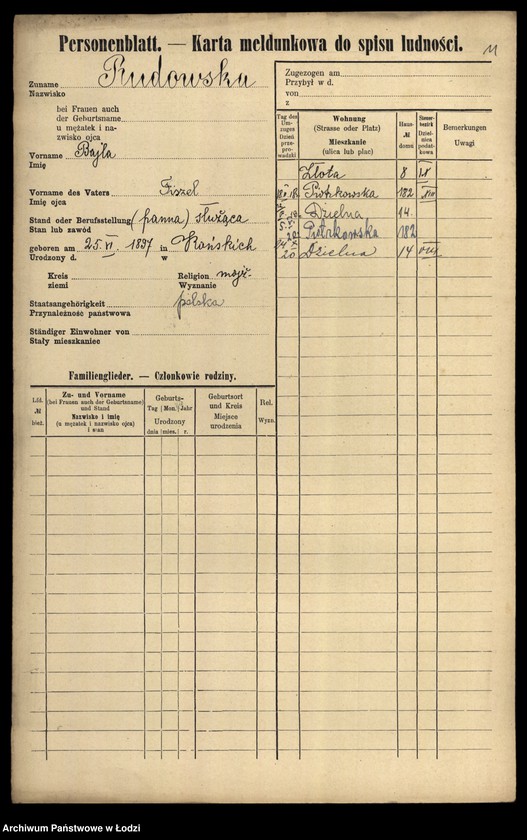 Personenblatt. — Karta meldunkowa do spisu ludności.
11
Zuname Rudowska
Nazwisko
bei Frauen auch
der Geburtsname
u mężatek i na-
zwisko ojca
Vorname Bajla
Imię
Vorname des Vaters Fiszel
Imię ojca
Stand oder Berufsstellung (panna) służąca
Stan lub zawód
geboren am 25. VI. 1897 in Końskich
Urodzony d. w
Kreis Religion mojż.
ziemi Wyznanie
Staatsangehörigkeit polska
Przynależność państwowa
Ständiger Einwohner von
Stały mieszkaniec
Zugezogen am
Przybył w d.
von
z
Tag des Um-zuges Dzień prze-pro-wadzki
Wohnung (Strasse oder Platz) Mieszkanie (ulica lub plac)
Haus- № domu
Steuer-bezirk Dziel-nica podat-kowa
Bemerkungen Uwagi
Złota 8 IX
Piotrkowska 182 XIII
Dzielna 14
Piotrkowska 182
20 Dzielna 14 VIII
Familienglieder. — Członkowie rodziny.
Lfd. № bież.
Zu- und Vorname
(bei Frauen auch der Geburtsname)
und Stand
Nazwisko i imię
(u mężatek i nazwisko ojca)
i stan
Geburts-
Tag Mon. Jahr
Urodzony
dnia mies. r.
Geburtsort
und Kreis
Miejsce
urodzenia
Rel.
Wyzn.
Archiwum Państwowe w Łodzi